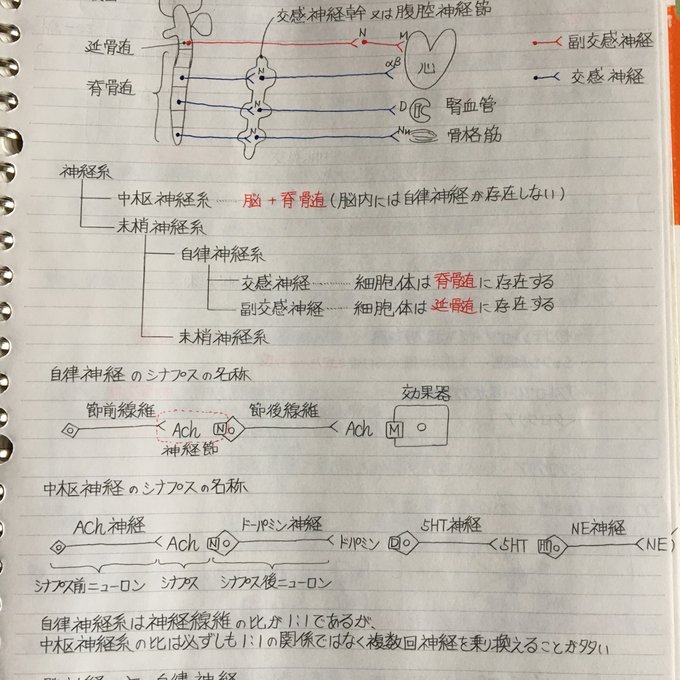 交感神経幹又は腹腔神経節
延骨道 N M 心 副交感神経
脊骨道 N αβ 交感神経
N D 腎血管
N NM 骨格筋
神経系
中枢神経系……脳+脊骨道(脳内には自律神経が存在しない)
末梢神経系
自律神経系
交感神経……細胞体は脊骨道に存在する
副交感神経……細胞体は延骨道に存在する
末梢神経系
自律神経のシナプスの名称
節前線維 節後線維 効果器
Ach N Ach M
神経節
中枢神経のシナプスの名称
ACh神経 ドーパミン神経 5HT神経 NE神経
ACh N ドパミン D 5HT HT NE)
シナプス前ニューロン シナプス シナプス後ニューロン
自律神経系は神経線維の比が1:1であるが、
中枢神経系の比は必ずしも1:1の関係ではなく複数回神経を乗り換えることが多い